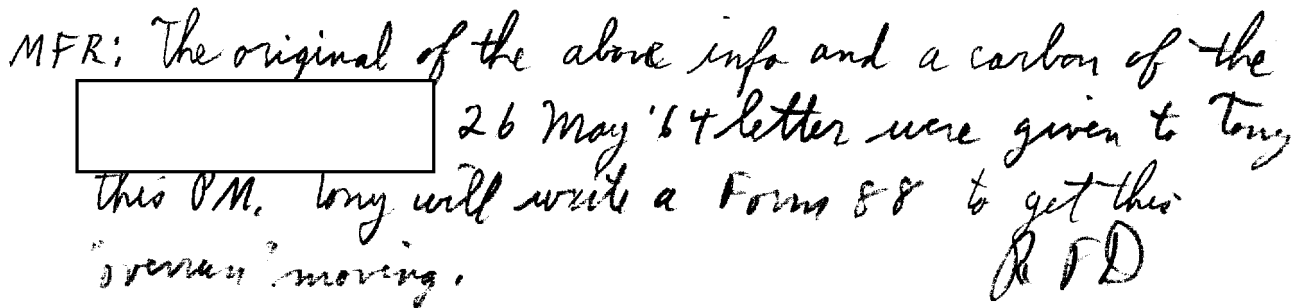 MFR: The original of the above info and a carbon of the
26 May '64 letter were given to Tony
this PM. Tony will write a Form 88 to get this
"overrun" moving.
R F D